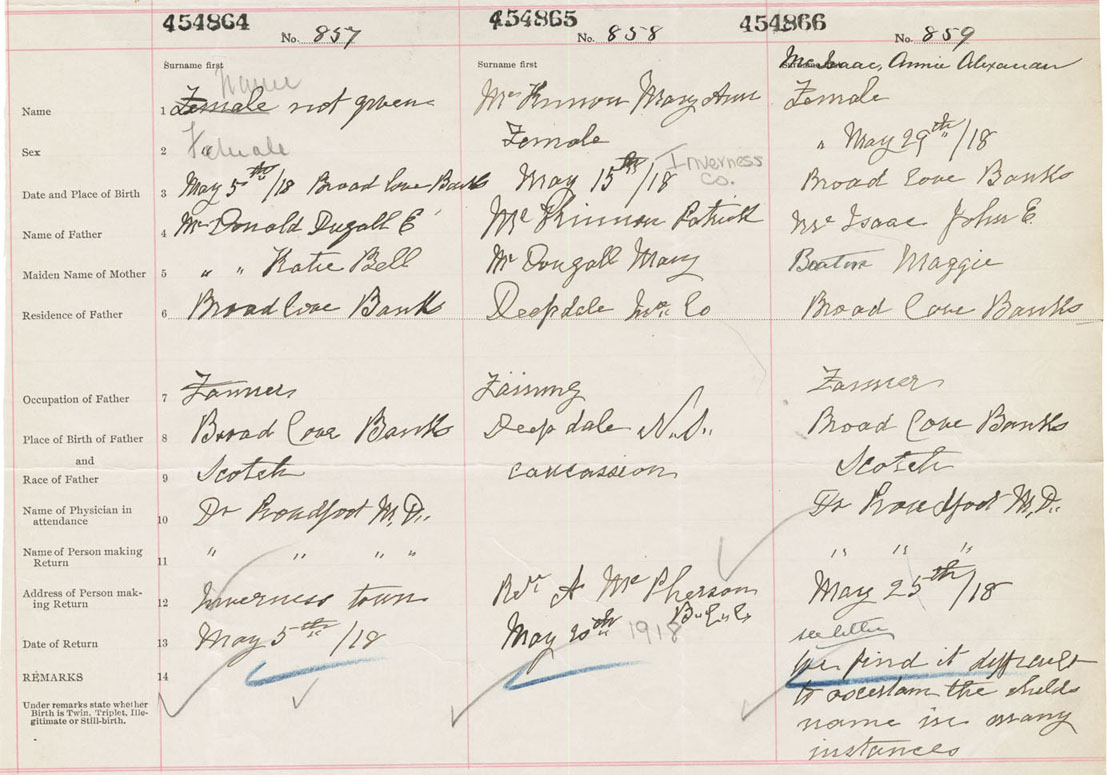 454864 454865 454866
No. 857 No. 858 No. 859
Surname first Surname first Mc Isaac, Annie
Name
Name 1 Female not given Mc Kinnon Mary Ann Female
Sex 2 Female Female " May 29th/18
Inverness Co.
Date and Place of Birth 3 May 5th/18 Broad Cove Banks May 15th/18 Broad Cove Banks
Name of Father 4 Mc Donald Dugall E Mc Kinnon Patrick Mc Isaac John E.
Maiden Name of Mother 5 " " Katie Bell Mc Dougall Mary Beaton Maggie
Residence of Father 6 Broad Cove Bank Deepdale Inv. Co Broad Cove Banks
Occupation of Father 7 Farmer Farmer
Place of Birth of Father 8 Broad Cove Banks Deepdale N.S. Broad Cove Banks
and
Race of Father 9 Scotch carcassion Scotch
Name of Physician in
attendance 10 Dr Proudfoot M.D. Dr Proudfoot M.D.
Name of Person making
Return 11 " " " " " " "
Address of Person mak-
ing Return 12 Inverness town Rev A Mc Pherson May 25th/18
Date of Return 13 May 5th/18 May 20th 1918 see letter
REMARKS 14 We find it difficult
to ascertain the childs
Under remarks state whether
Birth is Twin, Triplet, Ille-
gitimate or Still-birth.
name in many
instances